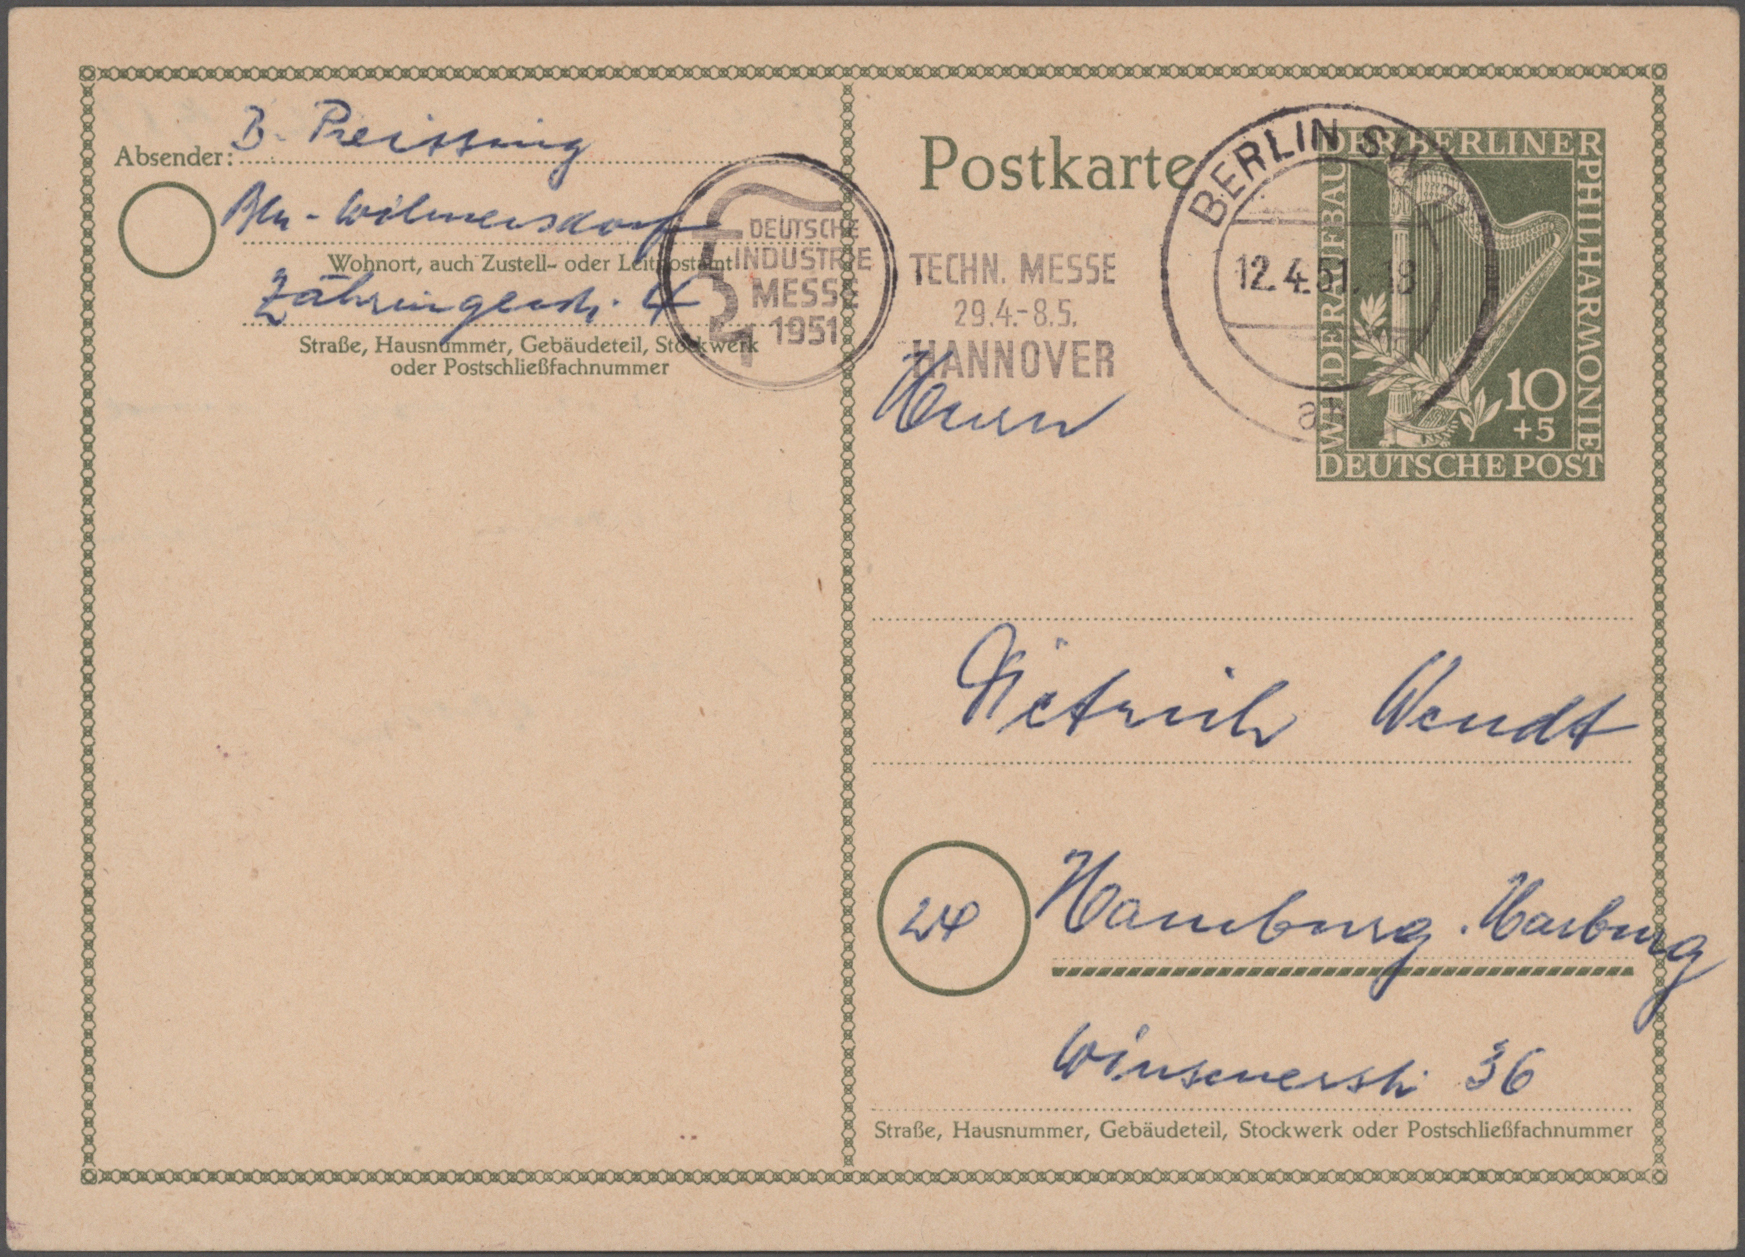 Absender: B. Preissing
Bln - Wilmersdorf
Wohnort, auch Zustell- oder Leitpostamt
Zähringerstr. 4
Straße, Hausnummer, Gebäudeteil, Stockwerk
oder Postschließfachnummer
DEUTSCHE
INDUSTRIE
MESSE
1951
TECHN. MESSE
29.4.-8.5.
HANNOVER
Postkarte
BERLIN SW
12.4.51.-18
WIEDERAUFBAU DER BERLINER PHILHARMONIE
10
+5
DEUTSCHE POST
Herrn
Dietrich Wendt
Hamburg-Harburg
Winsenerstr 36
Straße, Hausnummer, Gebäudeteil, Stockwerk oder Postschließfachnummer